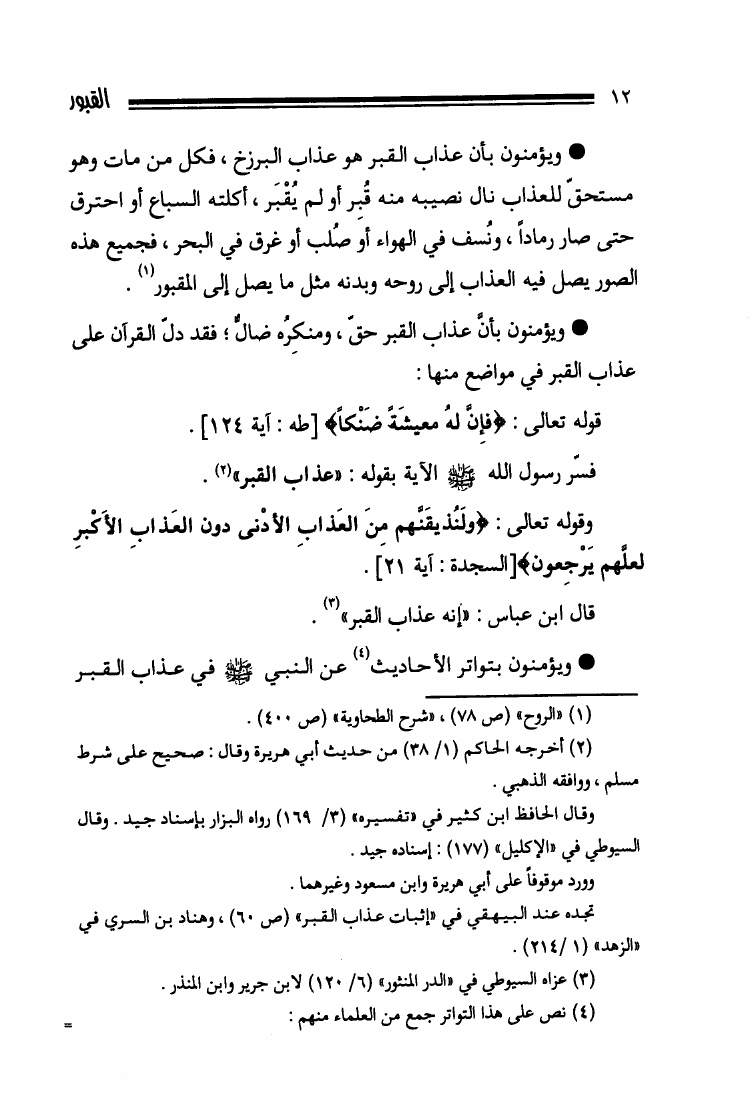 ١٢ القبور
● ويؤمنون بأن عذاب القبر هو عذاب البرزخ ، فكل من مات وهو
مستحقّ للعذاب نال نصيبه منه قُبِر أو لم يُقْبَر ، أكلته السباع أو احترق
حتى صار رماداً ، ونُسف في الهواء أو صُلب أو غرق في البحر ، فجميع هذه
الصور يصل فيه العذاب إلى روحه وبدنه مثل ما يصل إلى المقبور(١) .
● ويؤمنون بأنَّ عذاب القبر حقّ ، ومنكِرُه ضالٌّ ؛ فقد دلّ القرآن على
عذاب القبر في مواضع منها :
قوله تعالى : ﴿فإنَّ لهُ معيشَةً ضَنْكاً﴾ [طه : آية ١٢٤] .
فسّر رسول الله ﷺ الآية بقوله : «عذاب القبر»(٢) .
وقوله تعالى : ﴿ولَنُذيقَنَّهم مِنَ العَذابِ الأدْنى دون العَذابِ الأَكْبرِ
لعلَّهم يَرْجِعون﴾[السجدة : آية ٢١] .
قال ابن عباس : «إنه عذاب القبر»(٣) .
● ويؤمنون بتواتر الأحاديث(٤) عن النبي ﷺ في عذاب القبر
(١) «الروح» (ص ٧٨) ، «شرح الطحاوية» (ص ٤٠٠) .
(٢) أخرجه الحاكم (١/ ٣٨) من حديث أبي هريرة وقال : صحيح على شرط
مسلم ، ووافقه الذهبي .
وقال الحافظ ابن كثير في «تفسيره» (٣/ ١٦٩) رواه البزار بإسناد جيد . وقال
السيوطي في «الإكليل» (١٧٧) : إسناده جيد .
وورد موقوفاً على أبي هريرة وابن مسعود وغيرهما .
تجده عند البيهقي في «إثبات عذاب القبر» (ص ٦٠) ، وهناد بن السري في
«الزهد» (١ /٢١٤) .
(٣) عزاه السيوطي في «الدر المنثور» (٦/ ١٢٠) لابن جرير وابن المنذر .
(٤) نص على هذا التواتر جمع من العلماء منهم :
=